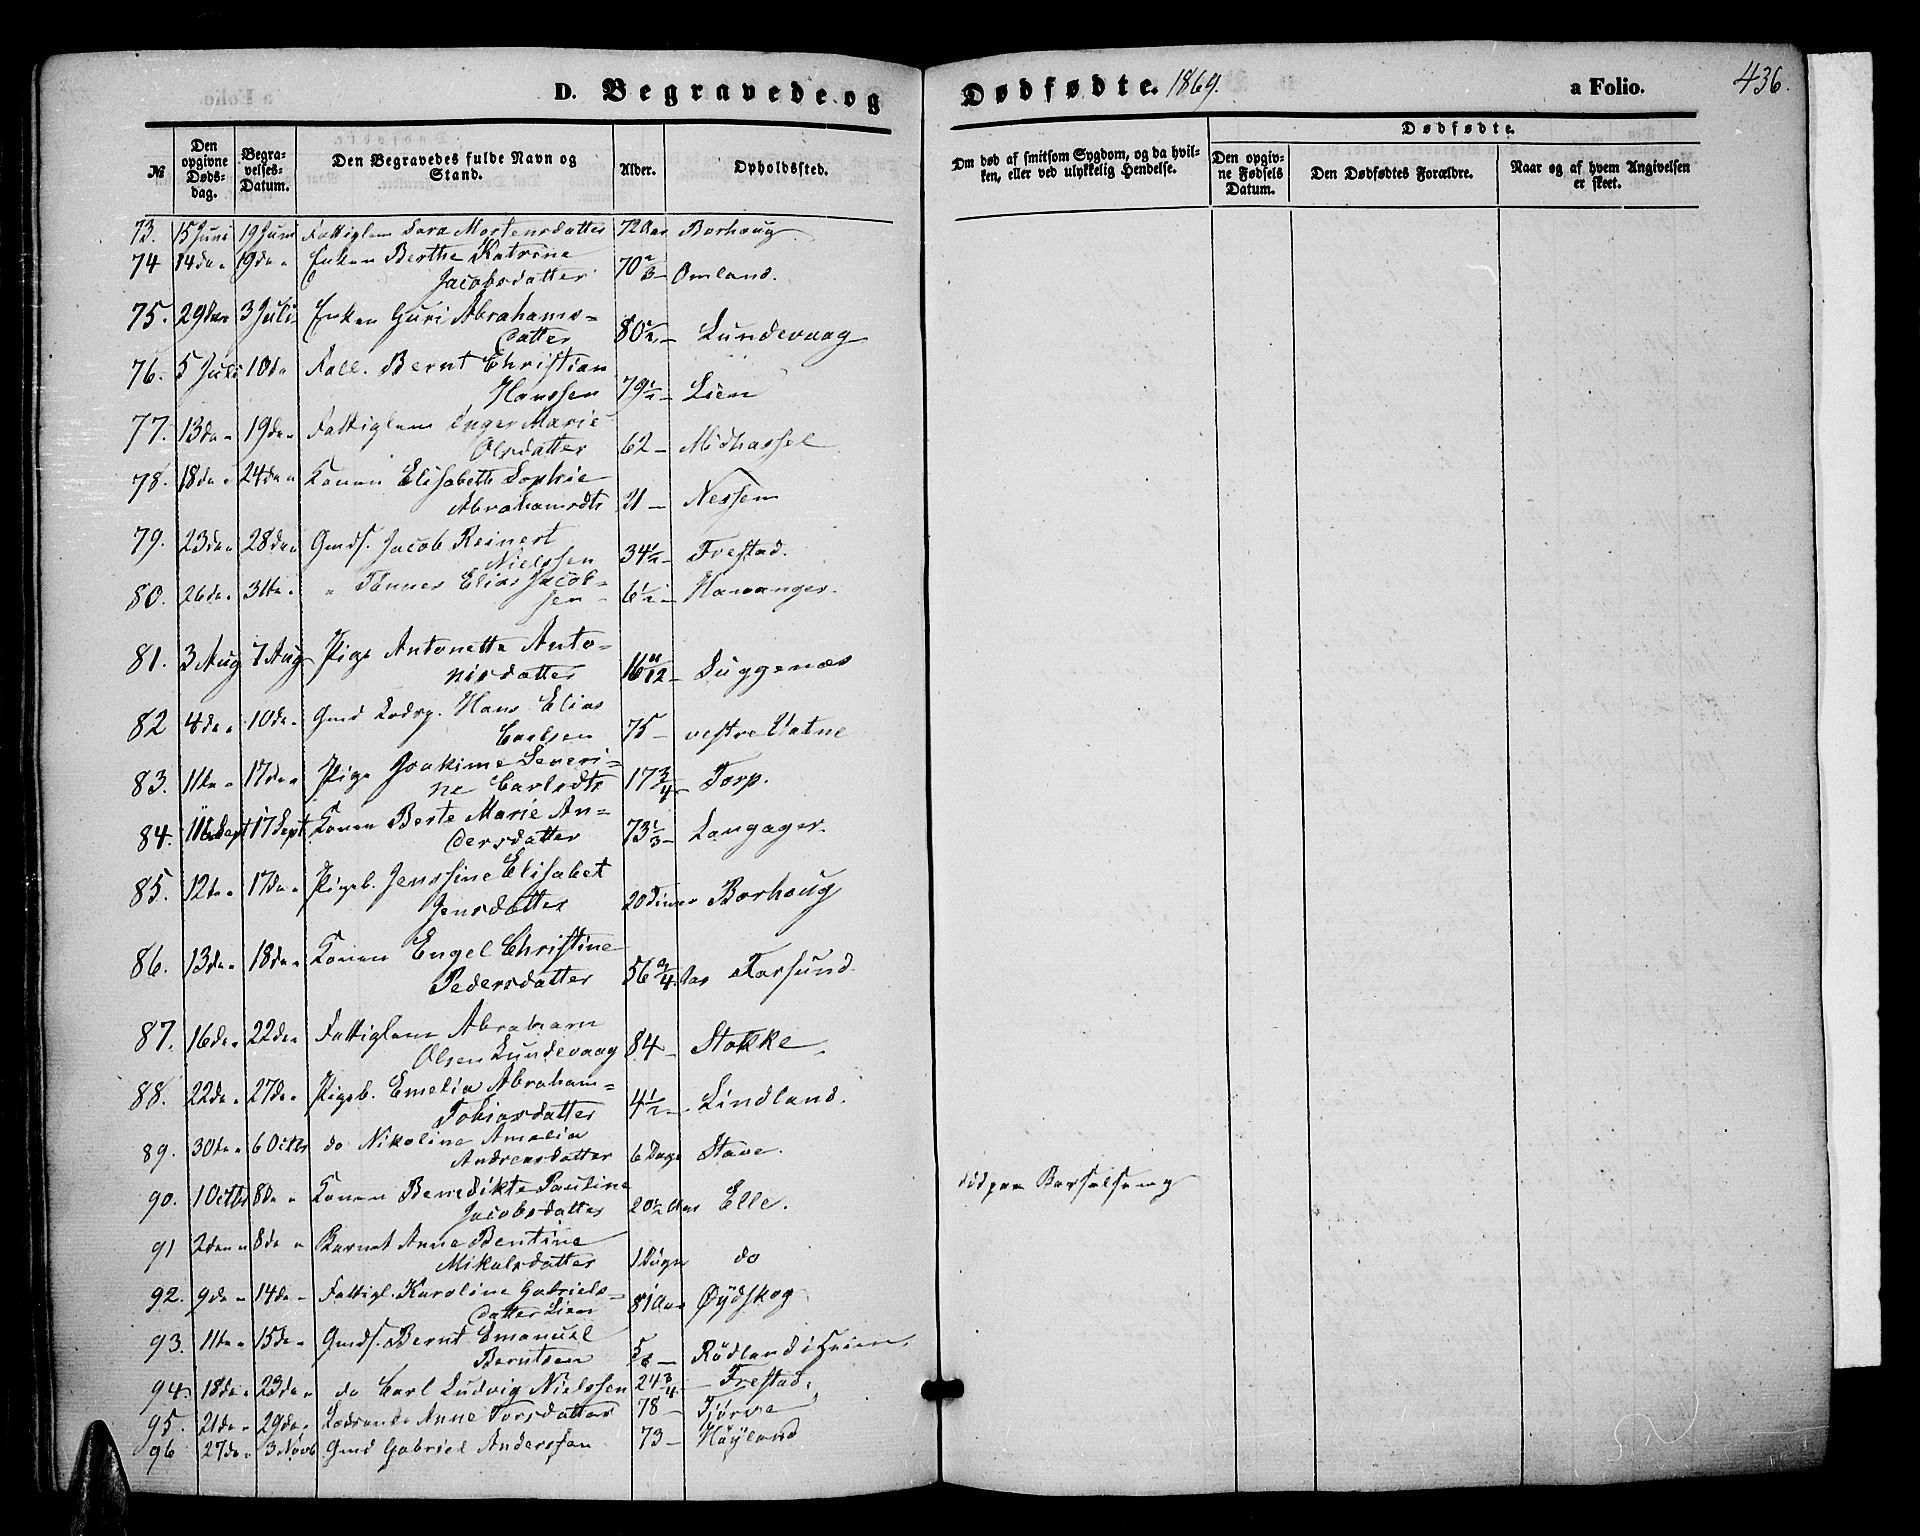 D. Begravede og Dødfødte. 1869. a Folio. 436.
№ Den opgivne Dødsdag. Begravelses-Datum. Den Begravedes fulde Navn og Stand. Alder. Opholdssted. Om død af smitsom Sygdom, og da hvilken, eller ved ulykkelig Hendelse. Dødfødte. Den opgivne Fødsels Datum. Den Dødfødtes Forældre. Naar og af hvem Angivelsen er skeet.
73. 15 Juni 19 Juni Fattiglem Sara Mortensdatter 72 Aar Borhoug
74 14da " 19da " Enken Berthe Katrine
Jacobsdatter 70 2/3 – Omland.
75. 29da " 3 Juli Enken Guri Abrahams=
datter 80 1/2 – Lundevaag
76. 5 Juli 10da Fall. Bernt Christian
Hanssen 79 1/2 – Lien
77. 13da " 19da " Fattiglem Inger Marie
Olsdatter 62 – Midhassel
78. 18da " 24da " Konen Elisabeth Sophie
Abrahamsdtr 21 – Nessem
79. 23da " 28da " Gmds. Jacob Reinert
Nielssen 34 1/2 – Frestad.
80. 26da " 31ta " " Tønner Elias Jacob=
sen 6 1/2 – Havanger.
81. 3 Aug 7 Aug Pige Antonette Anto=
nisdatter 16 11/12 – Duggenæs
82 4da " 10da " Gmd Lodsg. Hans Elias
Carlsen 75 – vestre Vatne
83. 11ta " 17da " Pige Joakime Severi=
ne Carlsdtr 17 3/4 – Torp.
84. 11 Sept 17 Sept Konen Berte Marie An=
dersdatter 73 1/3 – Langager.
85. 12ta " 17da " Pigeb. Jenssine Elisabet
Jensdatter 20 Timer Borhoug
86. 13da " 18da " Konen Engel Christine
Pedersdatter 56 3/4 Aar Farsund.
87. 16da " 22da " Fattiglem Abraham
Olsen Lundevaag 84 – Stokke
88. 22da " 27da " Pigeb. Emelia Abraham=
Tobiasdatter 4 1/2 – Lindland.
89. 30ta " 6 Octbr do Nikoline Amalia
Andreasdatter 6 Dage Stave.
90. 1 Octbr 8da " Konen Benedikte Pauline
Jacobsdatter 20 1/2 Aar Elle. død paa Barselseng
91 2den " 8da " Barnet Anne Bentine
Mikalsdatter 1 Døgn do
92. 9da " 14da " Fattigl. Karoline Gabriels=
datter Lien 81 Aar Øydskog
93. 11ta " 15da " Gmds. Bernt Emanuel
Berntsen 5/6 – Rødland i Heien.
94. 18da " 23da " do Carl Ludvig Nielssen 24 3/4 – Frestad.
95. 21da " 29da " Anne Torsdatter 78 – Tjørve
96 27da " 3 Novb. Gmd Gabriel Anderssen 73 – Høyland